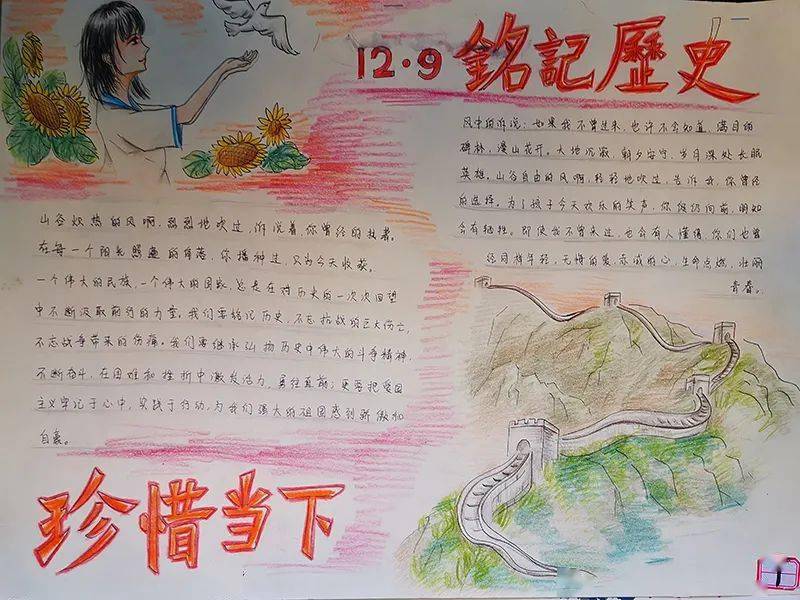 12·9 銘記歷史
风中的诉说:如果我不曾过来,也许不会知道,满目的
碑林,漫山花开。大地沉寂,朝夕安宁,岁月深处长眠
英雄。山谷自由的风啊,轻轻地吹过,告诉我,你曾经
的选择。为了孩子今天欢乐的笑声,你俊仍向前,明知
会有牺牲。即使我不曾来过,也会有人懂得,你们也曾
经同样年轻,无悔的爱,赤诚的心,生命点燃,壮丽
青春。
山谷炽热的风啊,烈烈地吹过,诉说着,你曾经的执着。
在每一个阳光照遍的角落,你播种过,只为今天收获。
一个伟大的民族,一个伟大的国家,总是在对历史的一次次回望
中不断汲取前行的力量。我们要铭记历史,不忘抗战的巨大伤亡,
不忘战争带来的伤痛。我们要继承弘扬历史中伟大的斗争精神,
不断奋斗,在困难和挫折中激发活力,勇往直前;更要把爱国
主义牢记于心中,实践于行动,为我们强大的祖国感到骄傲和
自豪。
珍惜当下
1